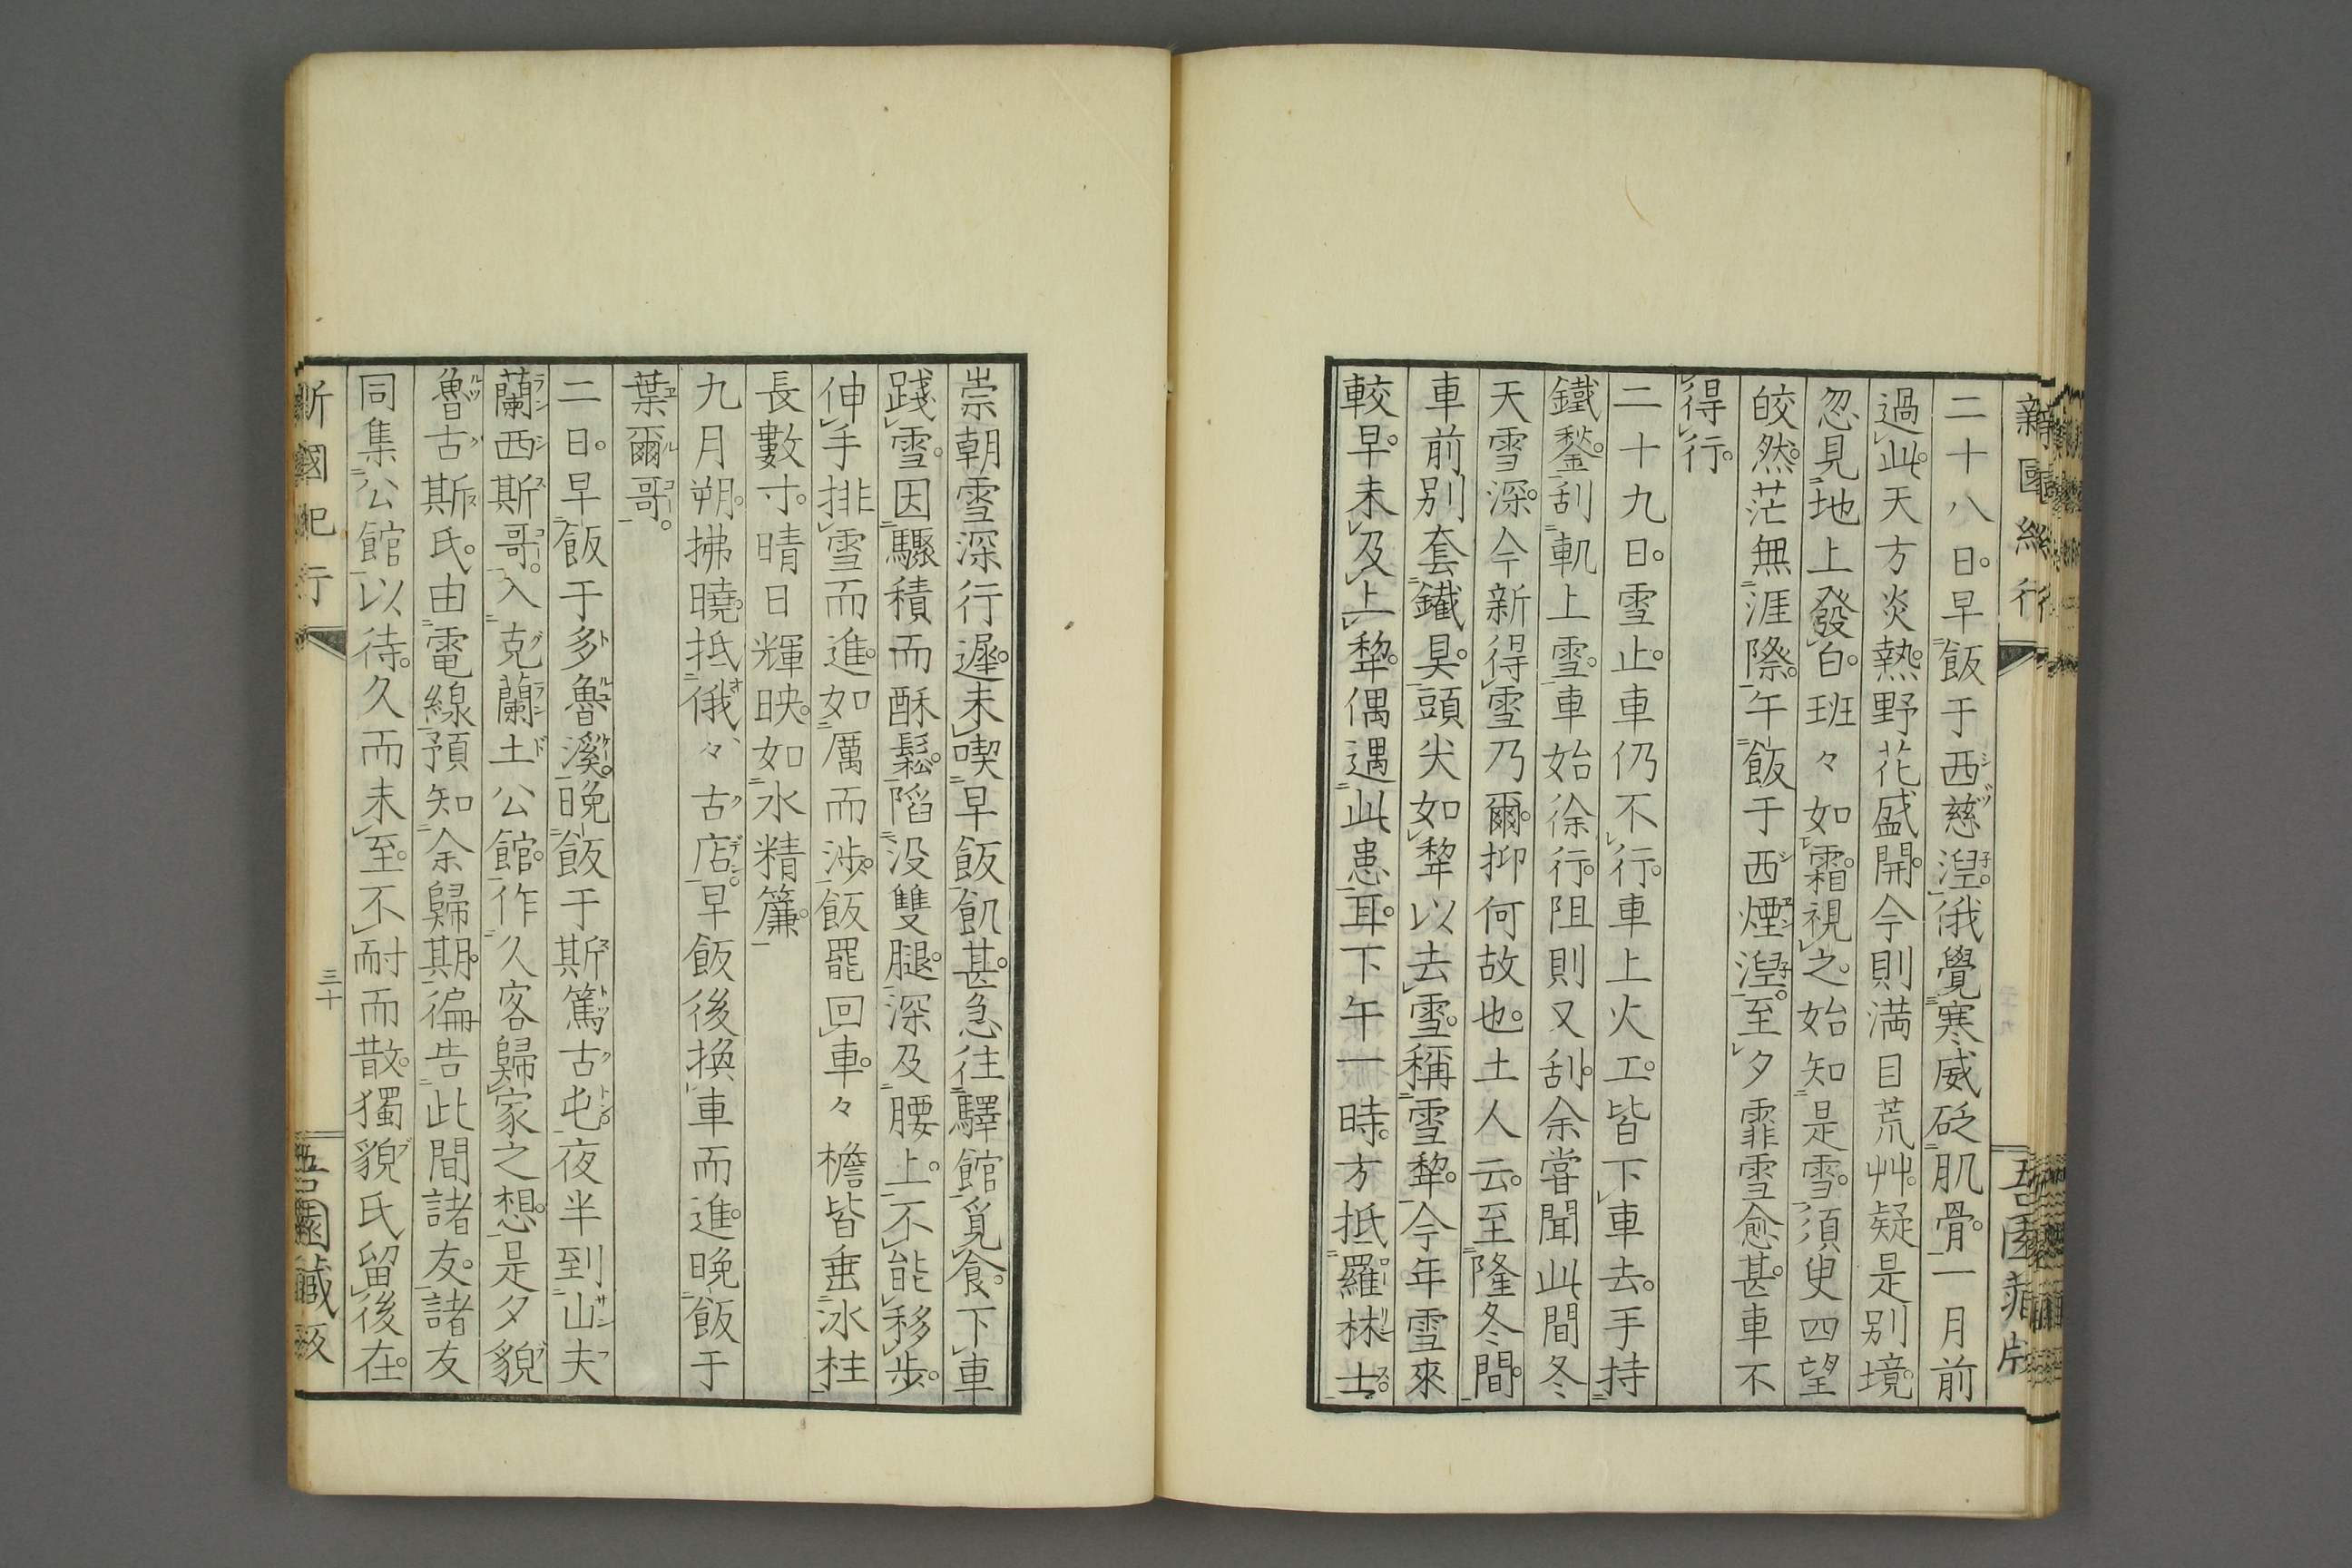 二十八日。早飯于西慈湼。俄覺寒威砭肌骨。一月前
過此。天方炎熱。野花盛開。今則満目荒艸。疑是別境。
忽見地上發白。班々如霜。視之。始知是雪。須臾四望
皎然。茫無涯際。午飯于西煙湼。至夕霏雪愈甚。車不
得行。
二十九日。雪止。車仍不行。車上火工。皆下車去。手持
鐵鍫。刮軌上雪。車始徐行。阻則又刮。余嘗聞此間冬
天雪深。今新得雪乃爾。抑何故也。土人云。至隆冬間。
車前別套鐵具。頭尖如犂以去雪。稱雪犂。今年雪來
較早。未及上犂。偶遇此患耳。下午一時。方抵羅林士。
崇朝雪深行遲。未喫早飯飢甚。急往驛館覓食。下車
踐雪。因驟積而酥鬆。陷没雙腿。深及腰上。不能移步。
伸手排雪而進。如厲而涉。飯罷回車。々檐皆垂冰柱
長數寸。晴日輝映。如水精簾。
九月朔。拂曉。抵俄々古店。早飯後換車而進。晩飯于
葉爾哥。
二日。早飯于多魯溪。晩飯于斯篤古屯。夜半到山夫
蘭西斯哥。入克蘭土公館。作久客歸家之想。是夕貌
魯古斯氏。由電線預知余歸期。徧告此間諸友。諸友
同集公館以待。久而未至。不耐而散。獨貌氏留後在。
新國紀行
三十
吾園藏板